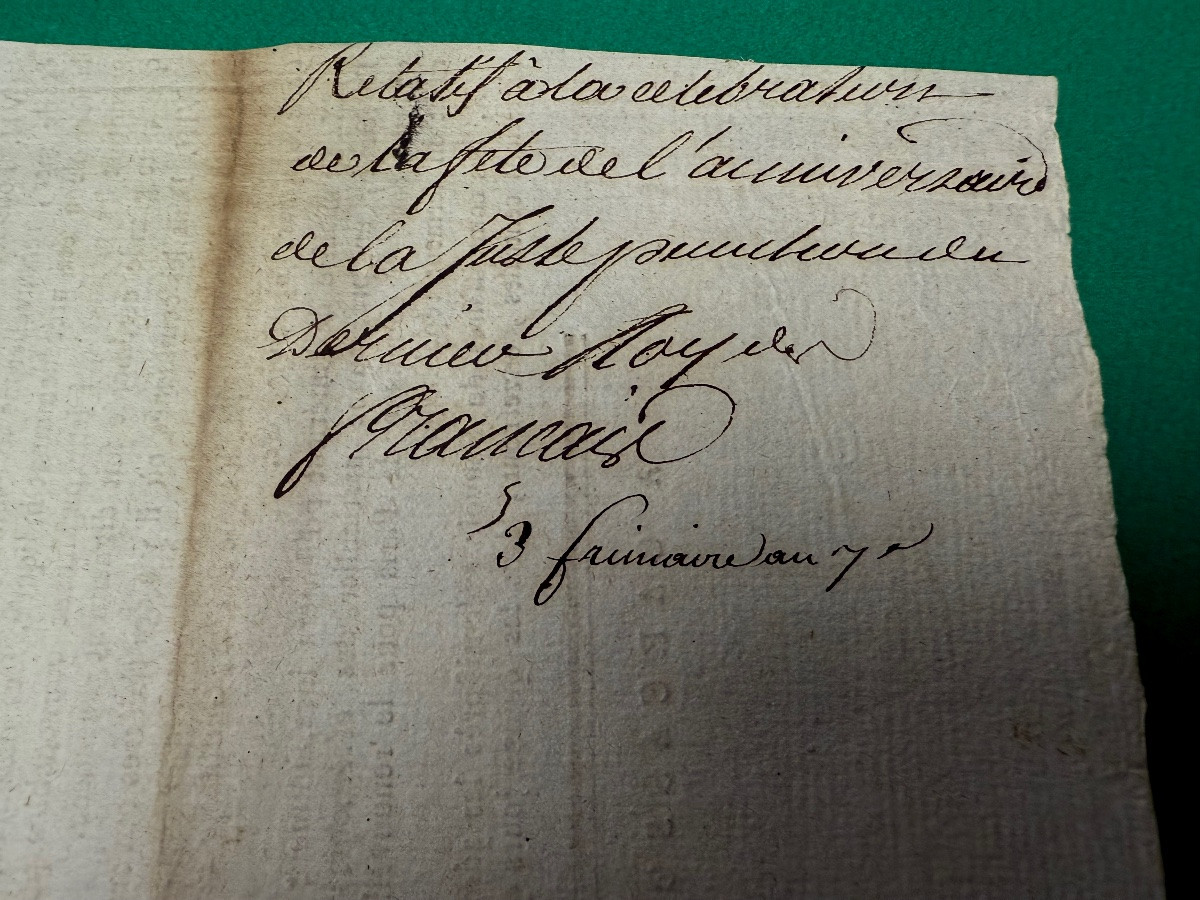 Relatif à la celebration
de la fete de l'anniversaire
de la Juste punition du
Dernier Roy des
francais
3 frimaire an 7e